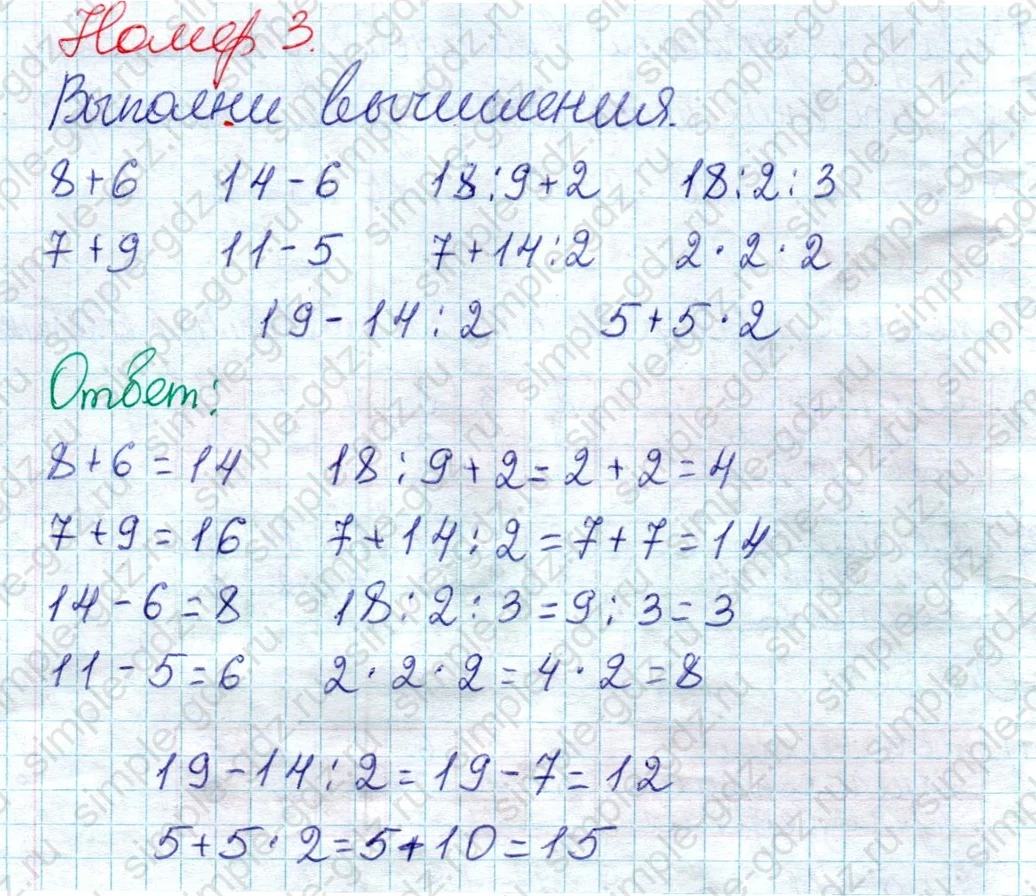 Номер 3.
Выполни вычисления.
8+6 14-6 18:9+2 18:2:3
7+9 11-5 7+14:2 2·2·2
19-14:2 5+5·2
Ответ:
8+6=14 18:9+2=2+2=4
7+9=16 7+14:2=7+7=14
14-6=8 18:2:3=9:3=3
11-5=6 2·2·2=4·2=8
19-14:2=19-7=12
5+5·2=5+10=15
simple-gdz.ru